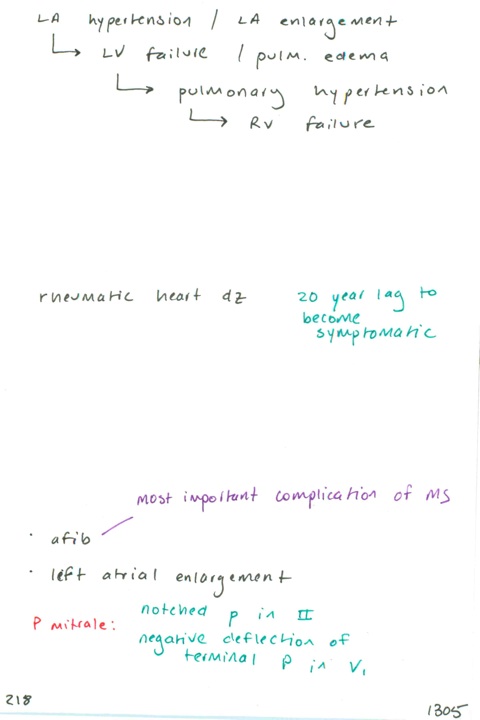 LA hypertension / LA enlargement
↳ LV failure / pulm. edema
↳ pulmonary hypertension
↳ RV failure
rheumatic heart dz 20 year lag to
become
symptomatic
most important complication of MS
· afib
· left atrial enlargement
P mitrale: notched p in II
negative deflection of
terminal P in V₁
218 1305